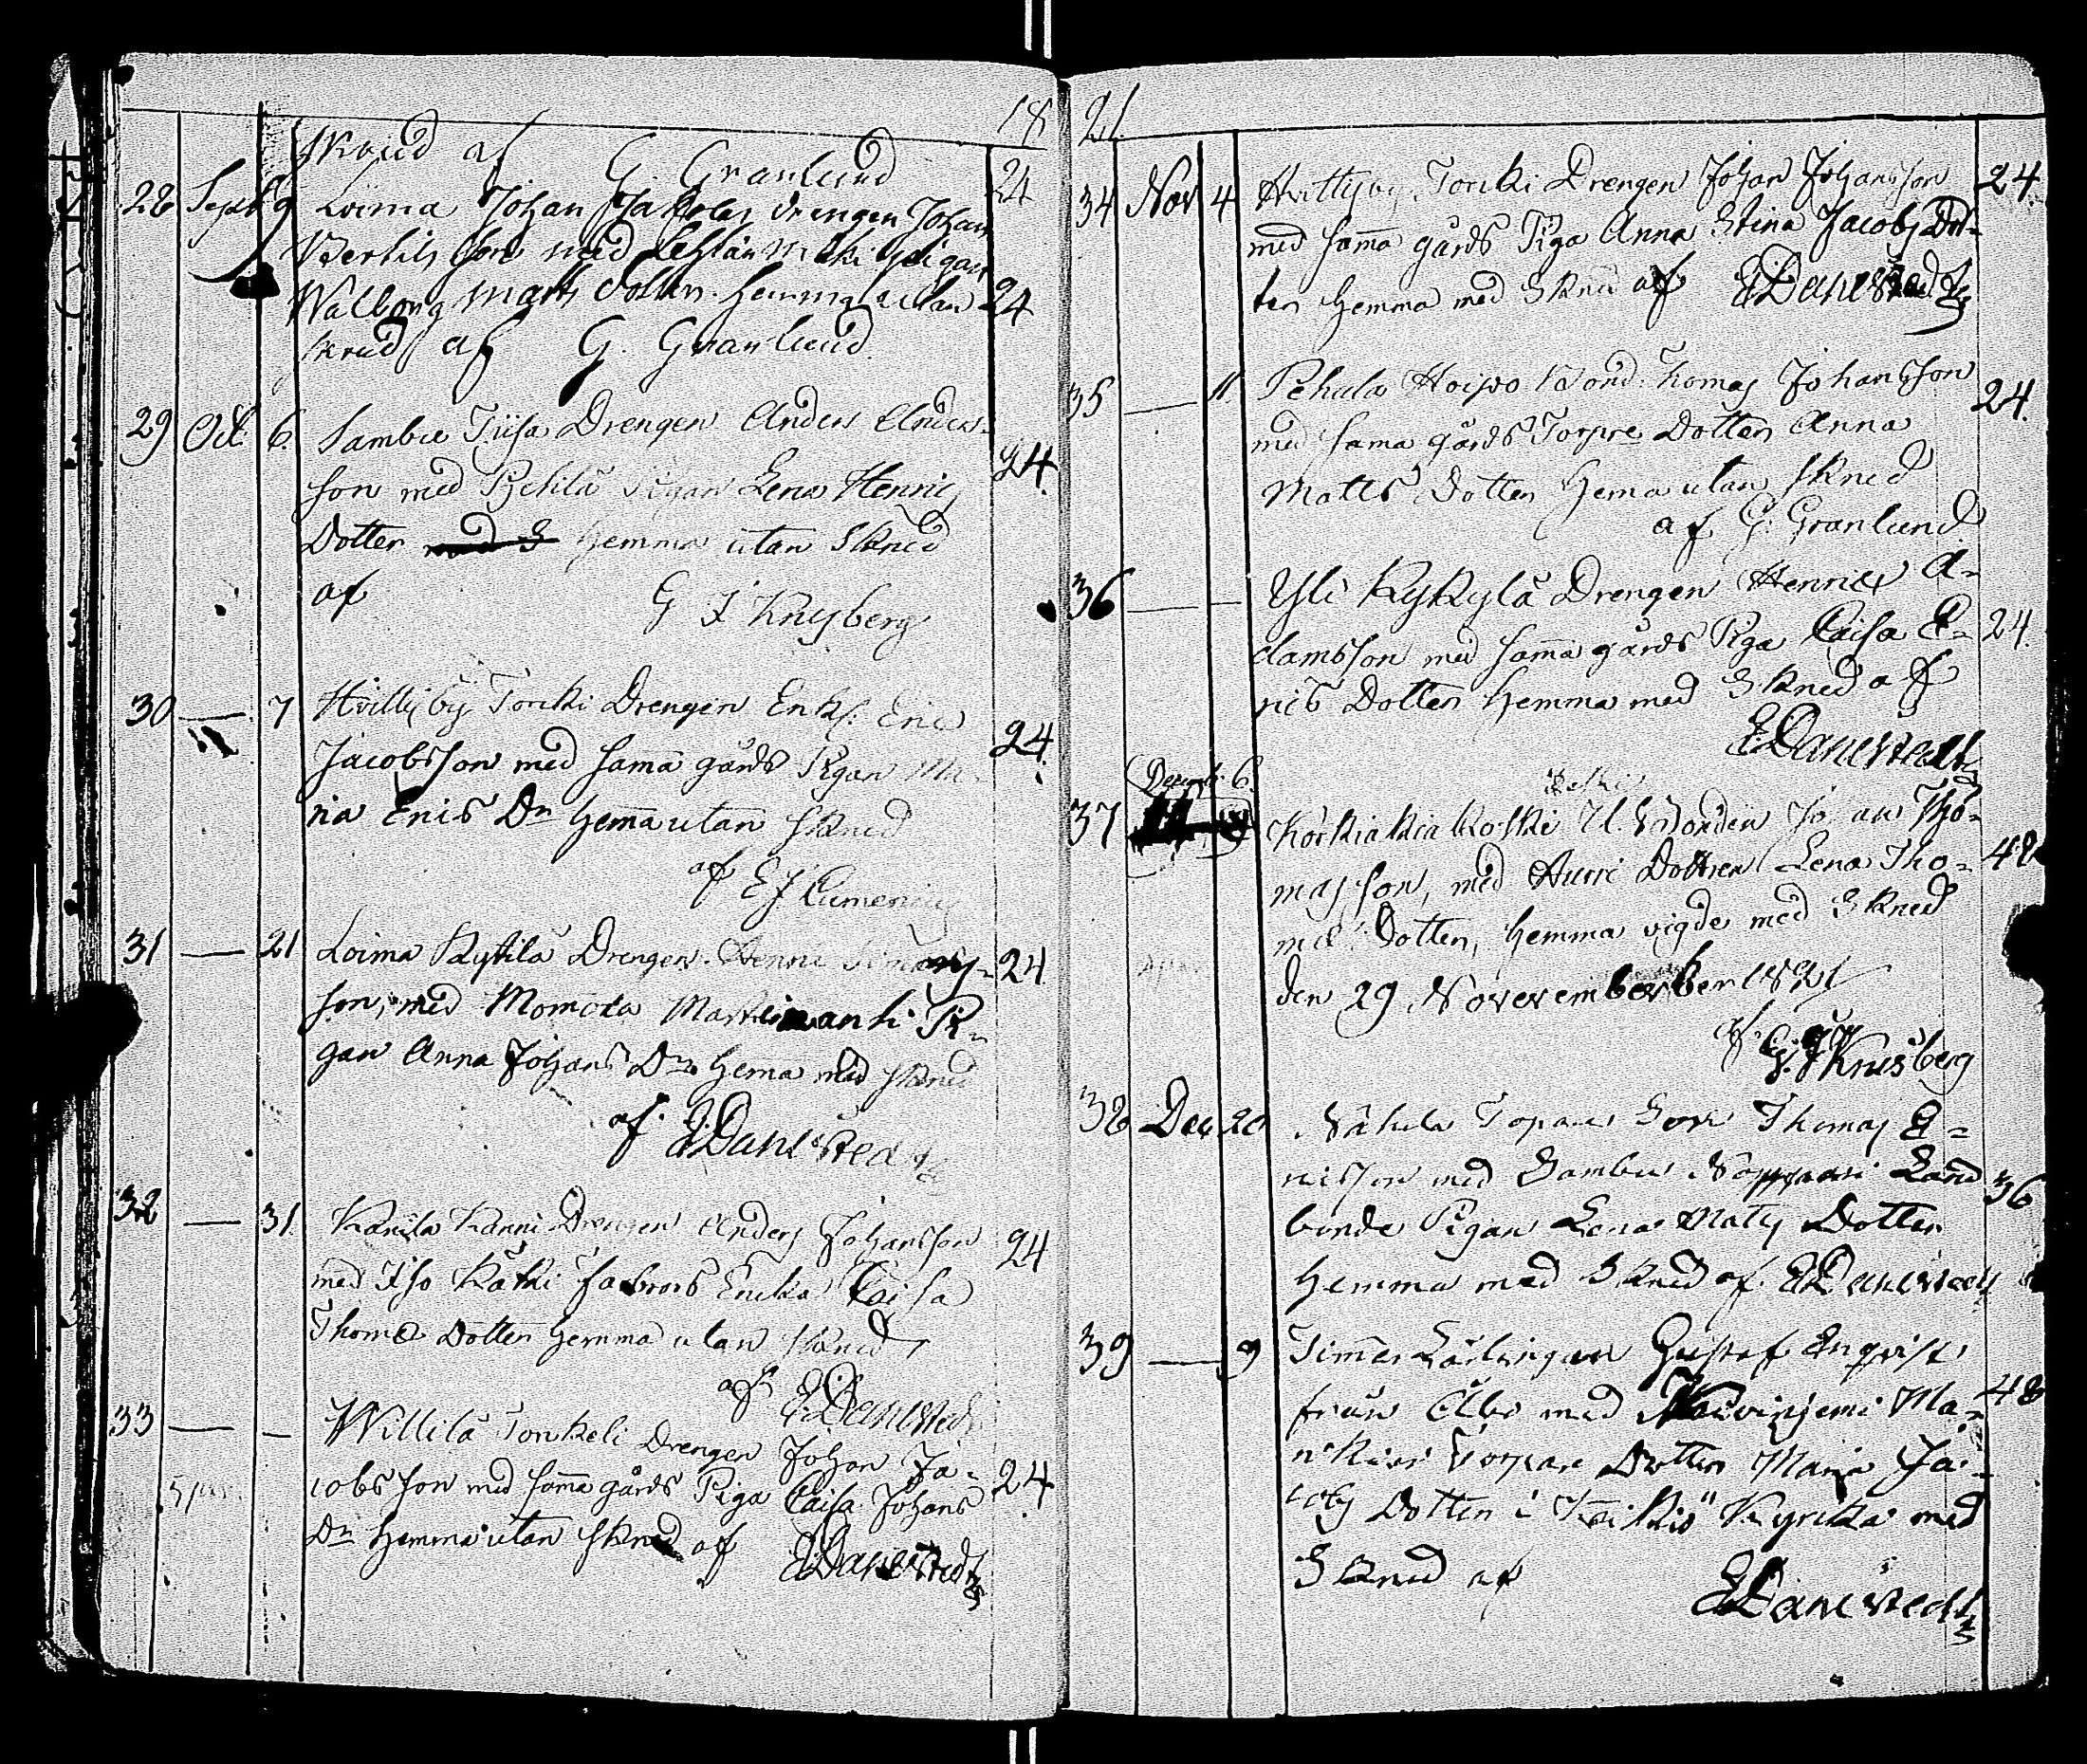 18
Skrud af G. Granlund 24
28 Sept 9 Loima Johan Jakolas drengen Johan
Bertilsson med Lehtianmäki Pigan
Walborg Matts dotter hemma utan 24
skrud af G. Granlund
29 Oct 6. Sambu Tiisa Drengen Anders Anders-
son med Pehila Pigan Lena Henrics 24.
Dotter hemma utan Skrud
af G J Krusberg
30 — 7 Hvittisby Torcki Drengen Enkl: Eric
Jacobsson med sama gårds Pigan Ma- 24.
ria Erics Dr hema utan skrud
af E J Cumenius
31 — 21 Loima Kytilä Drengen Henric Simons- 24
son, med Momola Marttinantti Pi-
gan Anna Johans Dr hema med skrud
af E Danlstedt
32 — 31. Kanila Kanni Drengen Anders Johansson 24
med Iso Kätki fabrors Encka Caisa
Thomæ Dotter hemma utan skrud
af E Danlstedt
33 — — Willilä Tonkeli Drengen Johan Ja-
cobsson med sama gårds Piga Caisa Johans 24
Dr hemma utan skrud af E Danlstedt
21
34 Nov 4 Hvittisby Torcki Drengen Johan Johansson 24.
med sama gårds Piga Anna Stina Jacobs Dot-
ter hemma med Skrud af E Danlstedt
35 — 11 Pehula Hoipo Bond. Thomas Johansson 24.
med sama gårds Torpre Dotter Anna
Matts Dotter hema utan skrud
af G. Granlund
36 — — Yli Kykylä Drengen Henric A-
damsson med sama gårds Piga Caisa E- 24.
rics Dotter hemma med Skrud af
E Danlstedt
Decemb: 6.
37 Korkiakoski U. Bonden Johan Tho- 48
masson, med Hurri Dottren Lena Tho-
mæ Dotter, hemma vigde med Skrud
den 29 November 1821
af G. J Krusberg
38 Dec 20 Nähula Topare Son Thomas E-
ricsson med Sambu Nopparri Land 36
bonde Pigan Lena Matts Dotter
Hemma med Skrud af E Danlstedt
39 — 9 Timer Lärlingen Gustaf Enqvist
från Åbo med Kauvinjemi Ma- 48
nikin Torpare Dotter Maria Ja-
cobs Dotter i Keikiö Kyrcka med
Skrud af E Danlstedt